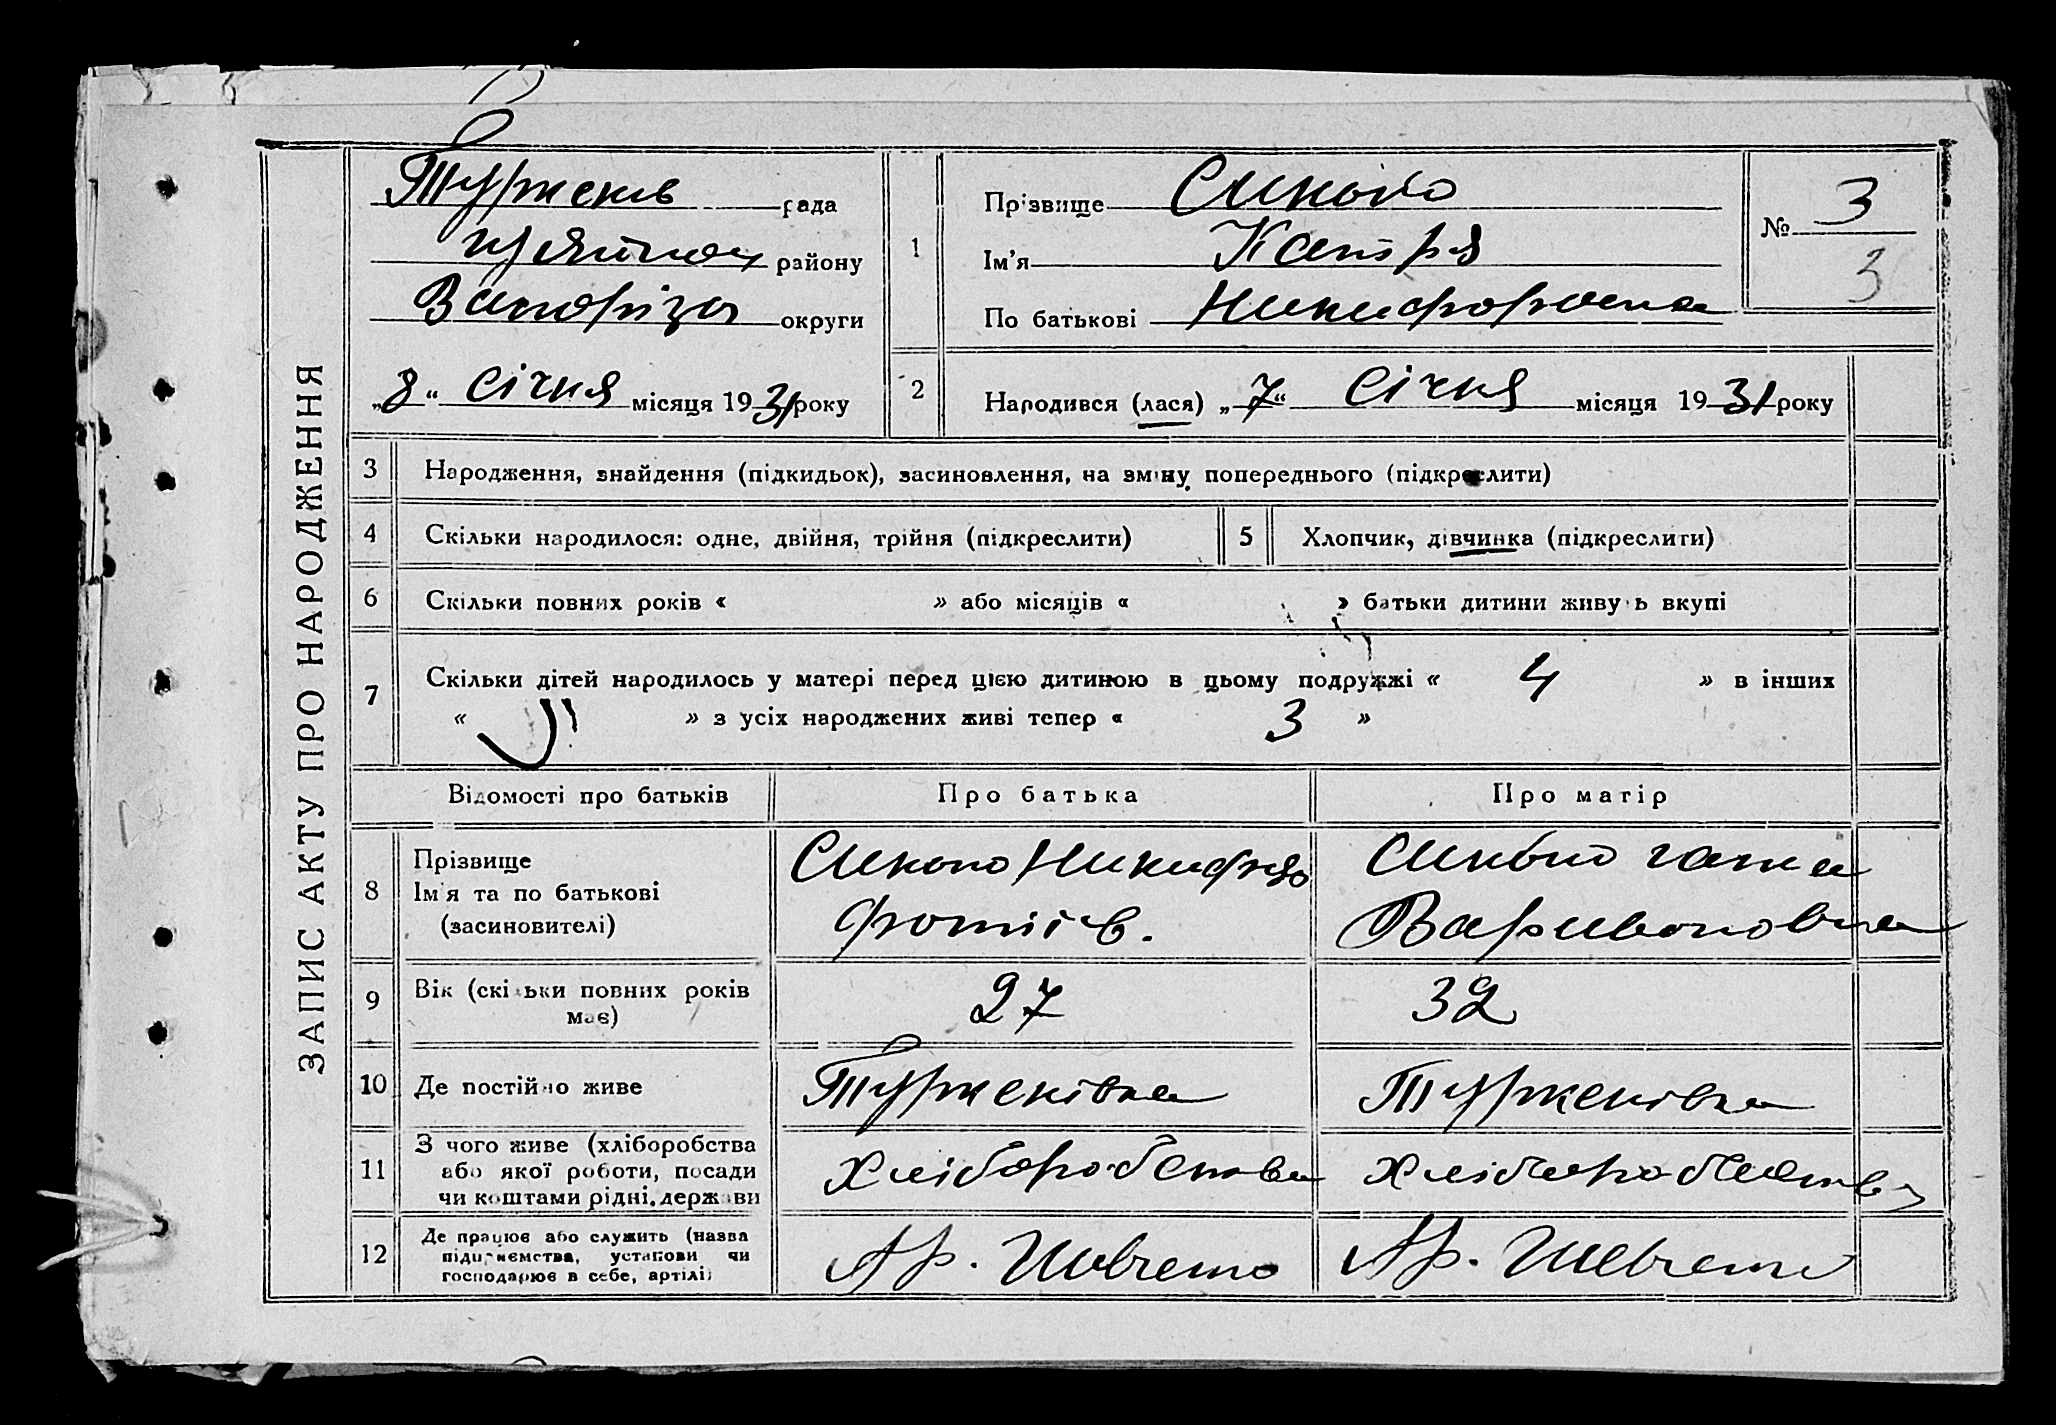 ЗАПИС АКТУ ПРО НАРОДЖЕННЯ
Турженів рада
району
Запоріза округи
„8“ Січня місяця 1931 року
1
Прізвище
Ім'я Катря
По батькові Никифоровна
№ 3
3
2
Народився (лася) „7“ Січня місяця 1931 року
3 Народження, знайдення (підкидьок), засиновлення, на зміну попереднього (підкреслити)
4 Скільки народилося: одне, двійня, трійня (підкреслити)
5 Хлопчик, дівчинка (підкреслити)
6 Скільки повних років « » або місяців « » батьки дитини живуть вкупі
7 Скільки дітей народилось у матері перед цією дитиною в цьому подружжі « 4 » в інших
« » з усіх народжених живі тепер « 3 »
Відомості про батьків Про батька Про матір
8 Прізвище
Ім'я та по батькові
(засиновителі)
Никифор
Фотіів.
Ганна
Варивоновна
9 Вік (скільки повних років
має)
27 32
10 Де постійно живе Турженівка Турженівка
11 З чого живе (хліборобства
або якої роботи, посади
чи коштами рідні, держави
Хліборобства Хліборобства
12 Де працює або служить (назва
підприємства, установи чи
господарює в себе, артілі)
Ар. Шевченко Ар. Шевченко